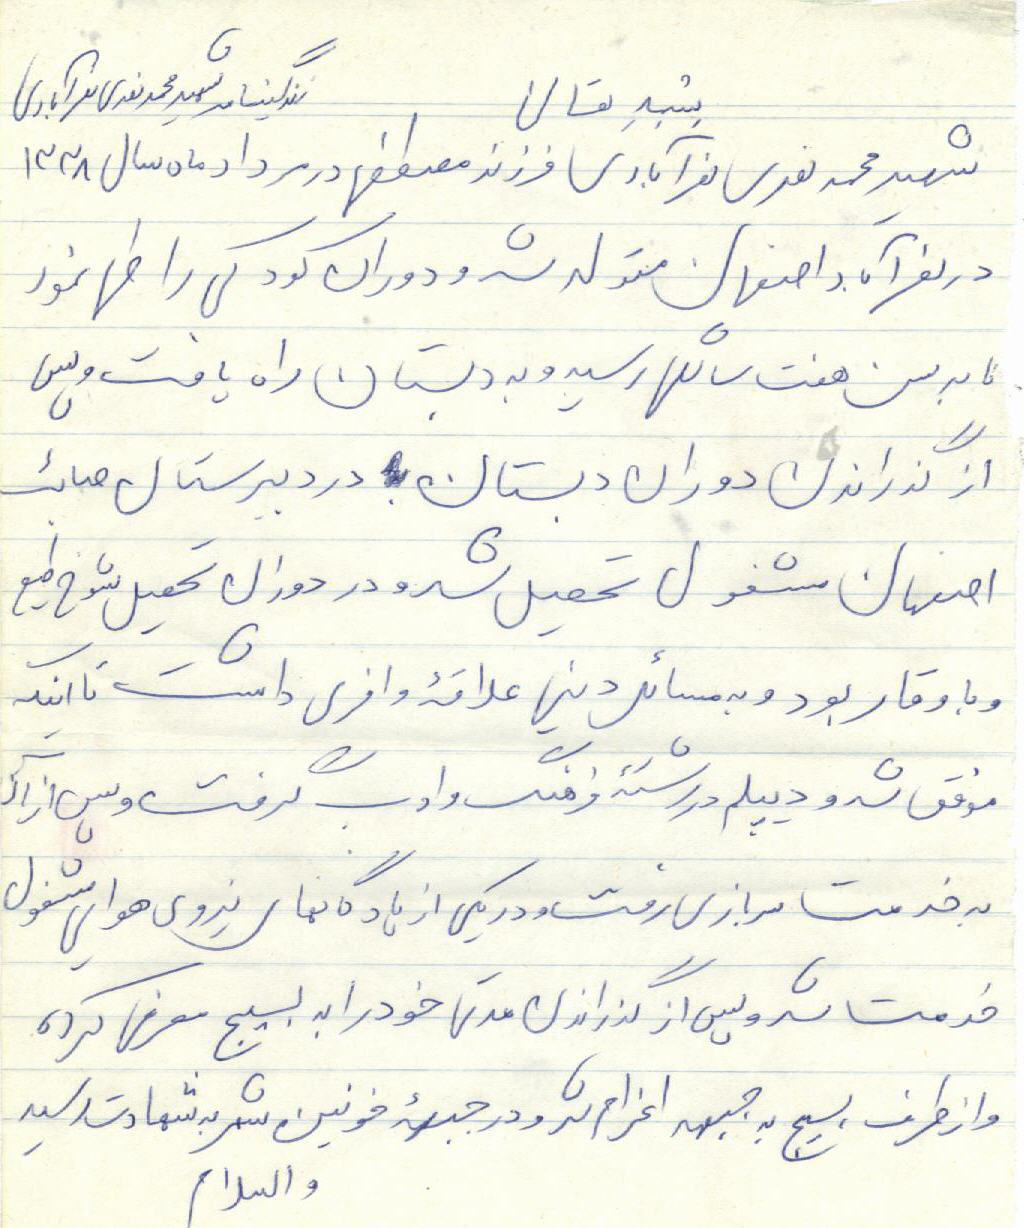 بسمه تعالی
زندگینامه شهید محمد نقدی نفرآبادی
شهید محمد نقدی نفرآبادی فرزند مصطفی در مرداد ماه سال ۱۳۳۸
در نفرآباد اصفهان متولد شد و دوران کودکی را طی نمود
تا به سن هفت سالگی رسید و به دبستان راه یافت و پس
از گذراندن دوران دبستان در دبیرستان صائب
اصفهان مشغول تحصیل شد و در دوران تحصیل شوخ طبع
و با وقار بود و به مسائل دینی علاقهٔ وافری داشت تا اینکه
موفق شد و دیپلم در رشتهٔ فرهنگ و ادب گرفت و پس از آن
به خدمت سربازی رفت و در یکی از پادگانهای نیروی هوایی مشغول
خدمت شد و پس از گذراندن مدتی خود را به بسیج معرفی کرده
و از طرف بسیج به جبهه اعزام شد و در جبههٔ خونین شهر به شهادت رسید
والسلام